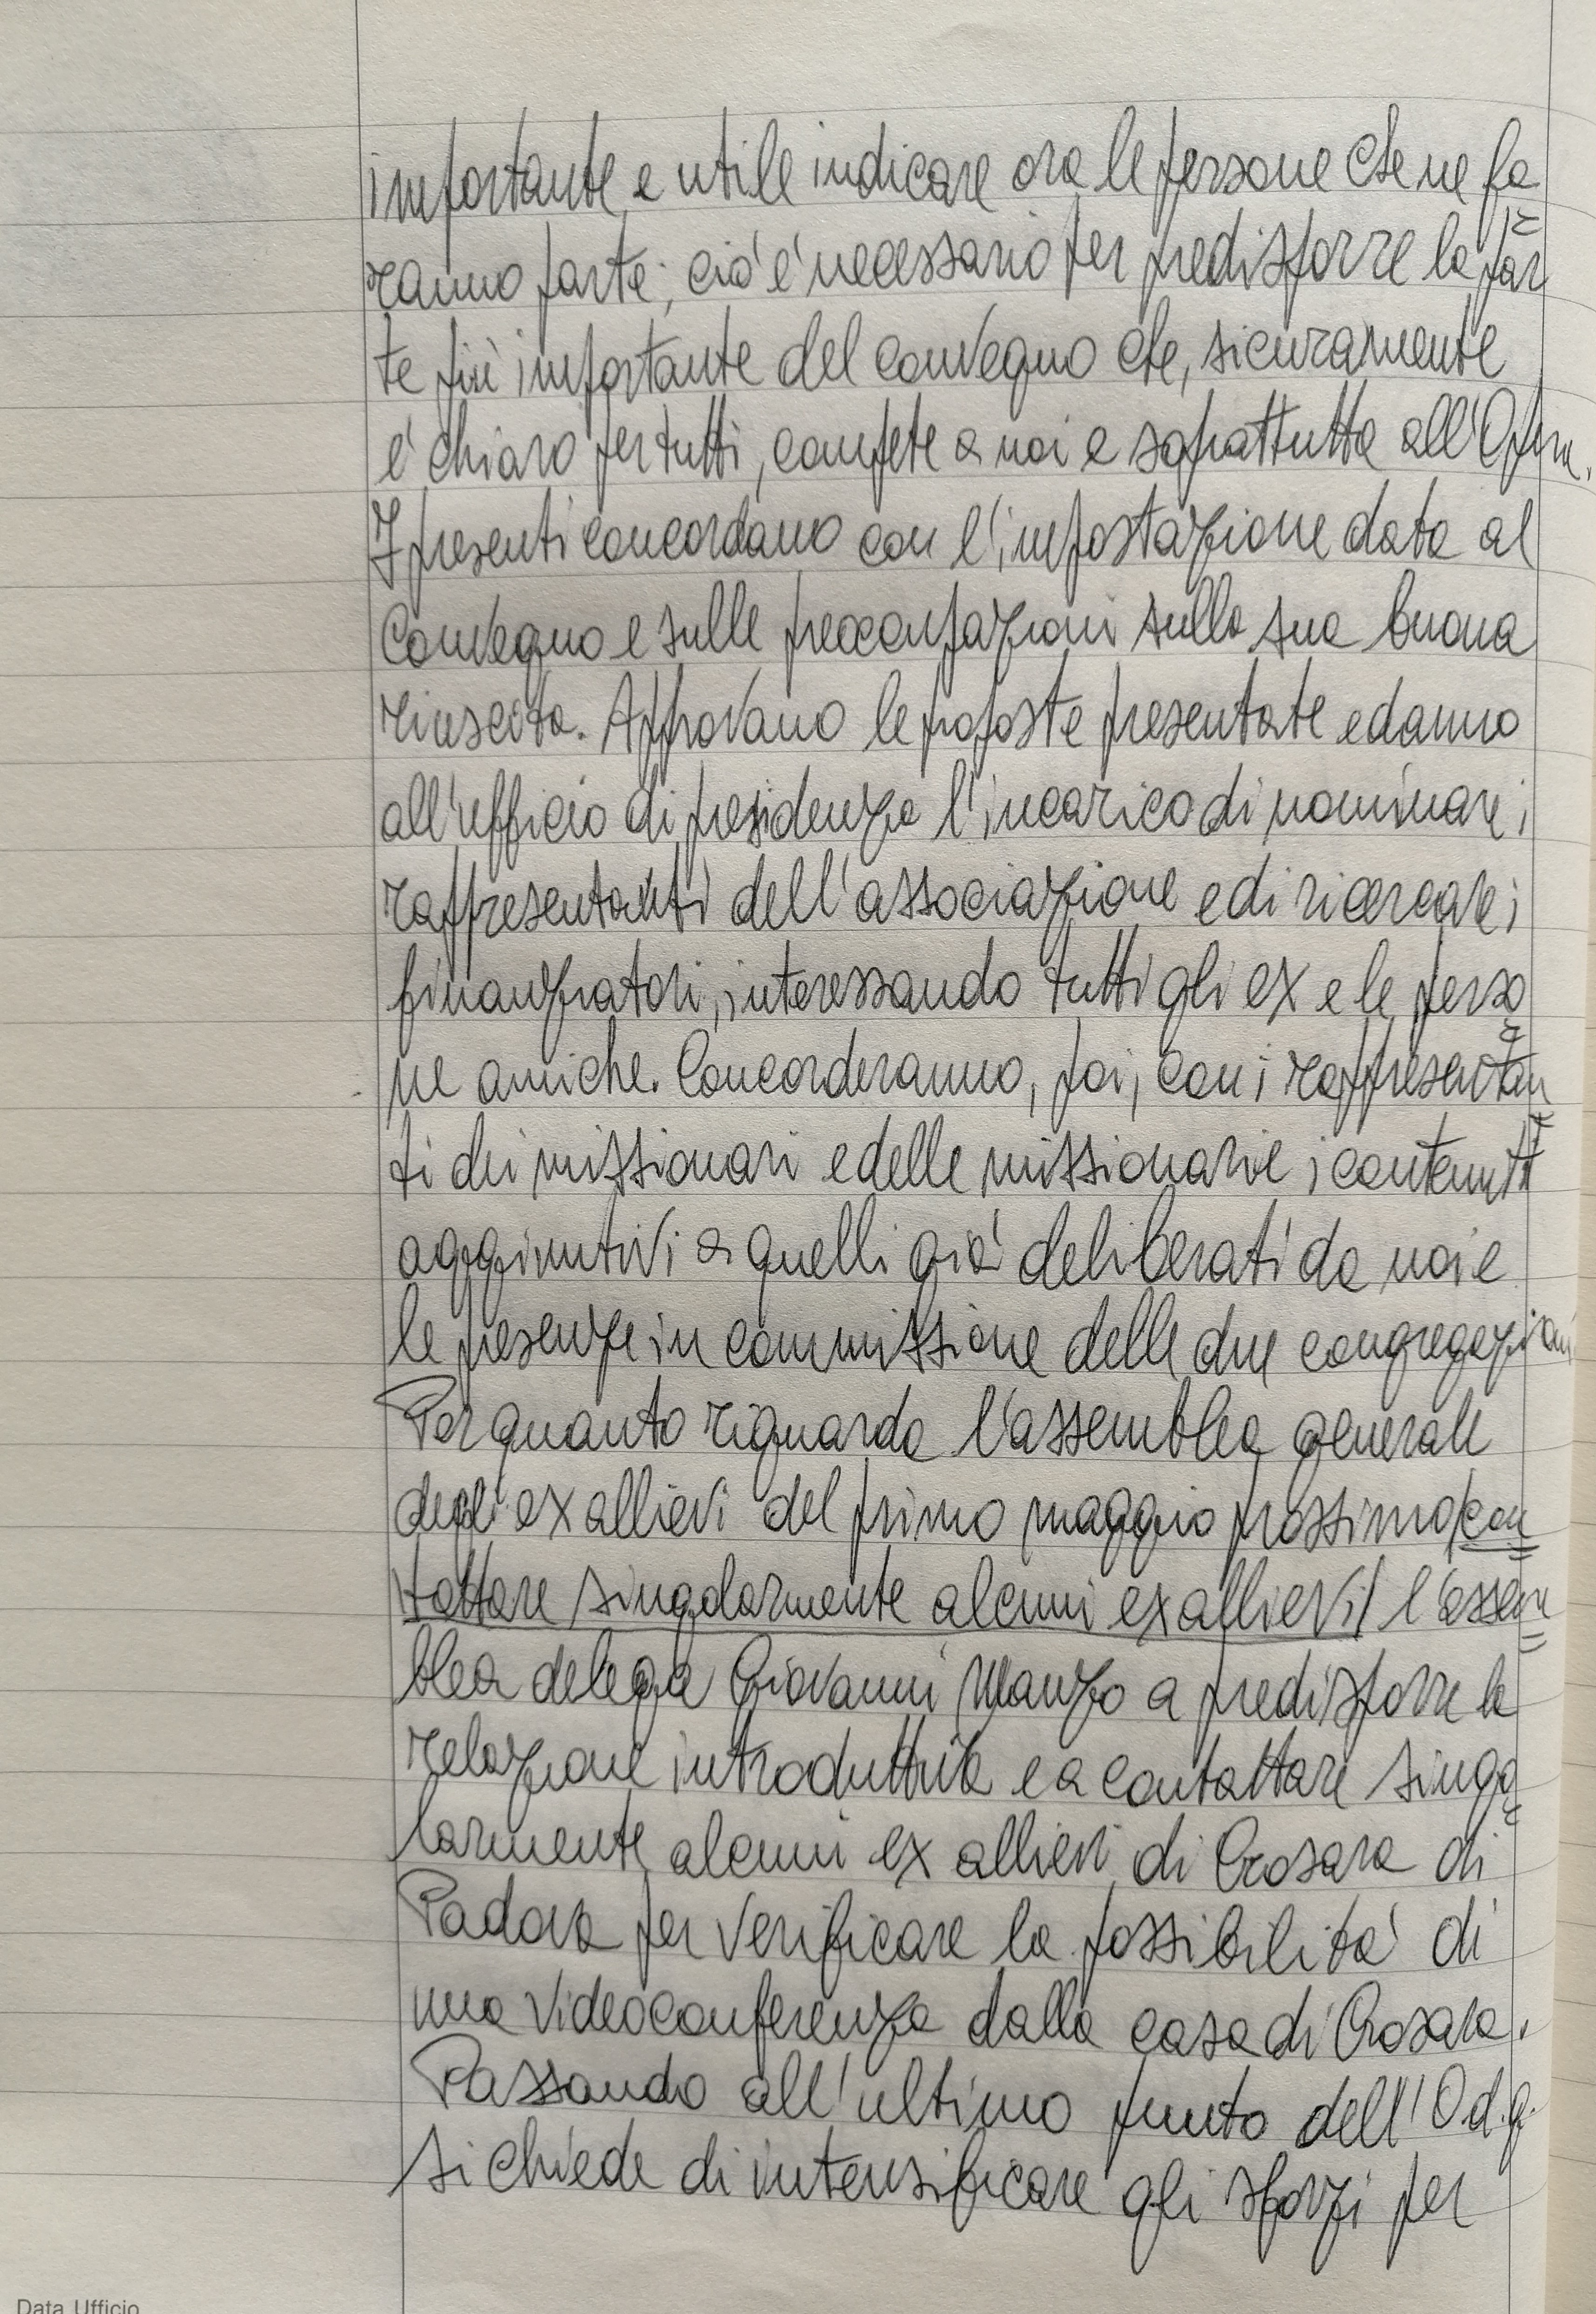 importante e utile indicare ora le persone che ne fa=
ranno parte; ciò è necessario per predisporre la par
te più importante del convegno che, sicuramente
è chiaro per tutti, compete a noi e soprattutto all'Opera.
I presenti concordano con l'impostazione data al
Convegno e sulle preoccupazioni sulla sua buona
riuscita. Approvano le proposte presentate e danno
all'ufficio di presidenza l'incarico di nominare i
rappresentanti dell'associazione e di ricercare i
finanziatori, interessando tutti gli ex e le perso=
ne amiche. Concorderanno, poi, con i rappresentan=
ti dei missionari e delle missionarie i contenuti
aggiuntivi a quelli già deliberati da noi e
le presenze in commissione delle due congregazioni
Per quanto riguarda l'assemblea generale
degli ex allievi del primo maggio prossimo/con=
tattare singolarmente alcuni ex allievi/ l'assem=
blea delega Giovanni Manzo a predisporre la
relazione introduttiva e a contattare singo=
larmente alcuni ex allievi di Crosara di
Padova per verificare la possibilità di
una videoconferenza dalla casa di Crosara.
Passando all'ultimo punto dell'O.d.g.
si chiede di intensificare gli sforzi per
Data Ufficio